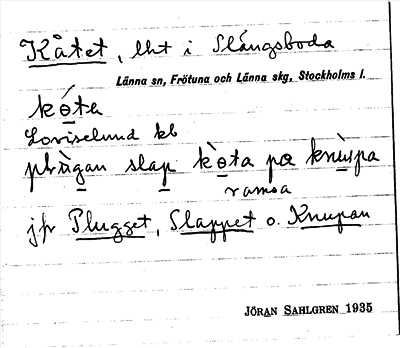 Kåtet, lht i Slängsboda
Länna sn, Frötuna och Länna skg, Stockholms l.
kóta
Loviselund kb
plùgan slap kòta pa knùpa
ramsa
jfr Plugget, Slappet o. Knupan
JÖRAN SAHLGREN 1935